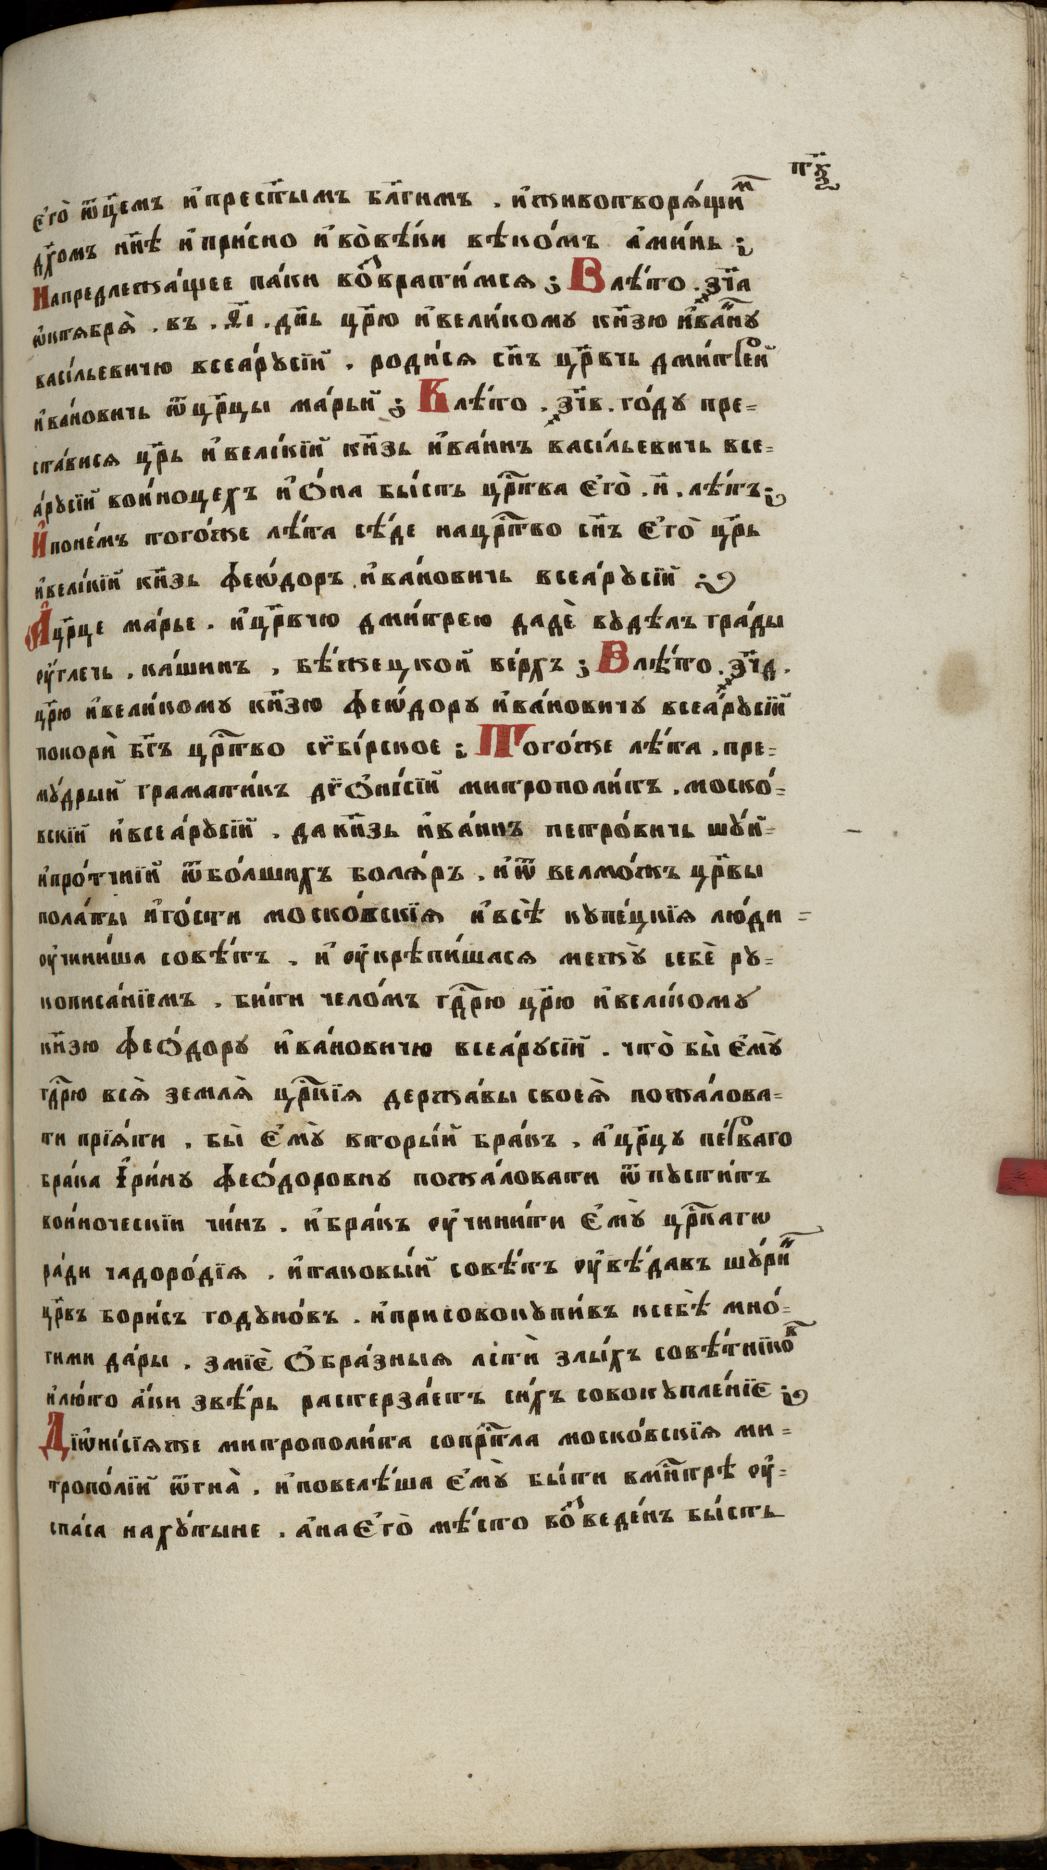 п҃ѯ
єго̀ ѿц҃емъ и҆прест҃ымъ бл҃гимъ . и҆животворѧ́щим
дх҃омъ нн҃ѣ и҆при́сно и҆во̀вѣ́ки вѣко́мъ а҆ми́нь ;
Напредлежа́щее па́ки во҆звратимсѧ ; Влѣ́то . ҂зч҃а
ѡ҆ктѧбрѧ̀ . въ . а҃і . дн҃ь цр҃ю и҆вели́кому кн҃зю и҆ва́ну
васі́льевичю всеа́рꙋсїй . роди́сѧ сн҃ъ цр҃вчь дми́трей
и҆ва́новичь ѿцр҃цы ма́рьи ; Влѣ́то . ҂зч҃в . го́дꙋ пре=
ста́висѧ цр҃ь и҆вели́кїй кн҃зь и҆ва́ннъ васі́льевичь все=
а́рꙋсїй вои́ноцехъ и҆ѻ҆на бы́сть цр҃тва є҆го̀ . н҃ . лѣ́тъ ;
И҆поне́мъ того́же лѣ́та сѣ́де нацр҃тво сн҃ъ є҆го̀ цр҃ь
и҆вели́кїй кн҃зь феѡ́доръ и҆ва́новичь всеа́рꙋсїй ;
А҆цр҃це ма́рье . и҆цр҃вчю дми́трею дадѐ вꙋдѣ́лъ гра́ды
ᲂу҆́глечь , ка́шинъ , бѣ́жецкой ве́рхъ ; Влѣ́то . ҂зч҃д .
цр҃ю и҆вели́кому кн҃зю феѡ́дору и҆ва́новичу всеа́рꙋсїй
покорѝ бг҃ъ цр҃тво сѵ҆би́рское ; Того́же лѣ́та , пре=
мꙋ́дрый грамати́къ дїѻни́сїй митрополи́тъ , моско́=
вскїй и҆всеа́рꙋсїй . да кн҃зь и҆ва́ннъ петро́вичь шꙋй=
и҆про́тчїй ѿбо́лшихъ болѧ́ръ , и҆ѿ велмо́жъ цр҃вы
пола́ты и҆го́сти моско́вскїѧ и҆всѣ̀ кꙋпе́цкїѧ лю́ди =
ᲂу҆чини́ша совѣ́тъ . и҆ ᲂу҆крѣпи́шасѧ межꙋ̀ себѐ рꙋ=
кописа́нїемъ . би́ти чело́мъ гдр҃ю цр҃ю и҆вели́кому
кн҃зю феѻ́дорꙋ и҆ва́новичю всеа́рꙋсїй . что̀ бы̀ є҆мꙋ̀
гдр҃ю всѧ̀ землѧ̀ цр҃кїѧ держа́вы своеѧ̀ пожа́лова=
ти прїѧ́ти , бы̀ є҆мꙋ̀ вторы́й бра́къ , а҆цр҃цꙋ пе́рваго
бра́ка І҆ри́нꙋ феѻ́доровнꙋ пожа́ловати ѿпꙋсти́тъ
вои́ноческїи чи́нъ . и҆бра́къ ᲂу҆чини́ти є҆мꙋ̀ цр҃каго
ра́ди чадоро́дїѧ . и҆таковы́й совѣ́тъ ᲂу҆вѣ́давъ шꙋ́рин
цр҃въ бори́съ годꙋно́въ . и҆присовокꙋпи́въ ксебѣ̀ мно́=
гими да́ры . змїє ѻ҆бра́зныѧ лістѝ злы́хъ совѣ́тнїков
и҆лю́то а҆́ки звѣ́рь растерза́етъ си́хъ совокꙋпле́нїє ;
Дїѡни́сїѧже митрополи́та сопр҃тла моско́вскїѧ ми=
трополі́й ѿгна̀ . и҆повелѣ́ша є҆мꙋ̀ бы́ти вмн҃трѣ ᲂу҆=
спа́са нахꙋ́тыне . а҆на є҆го̀ мѣ́сто во҆зведе́нъ бы́сть